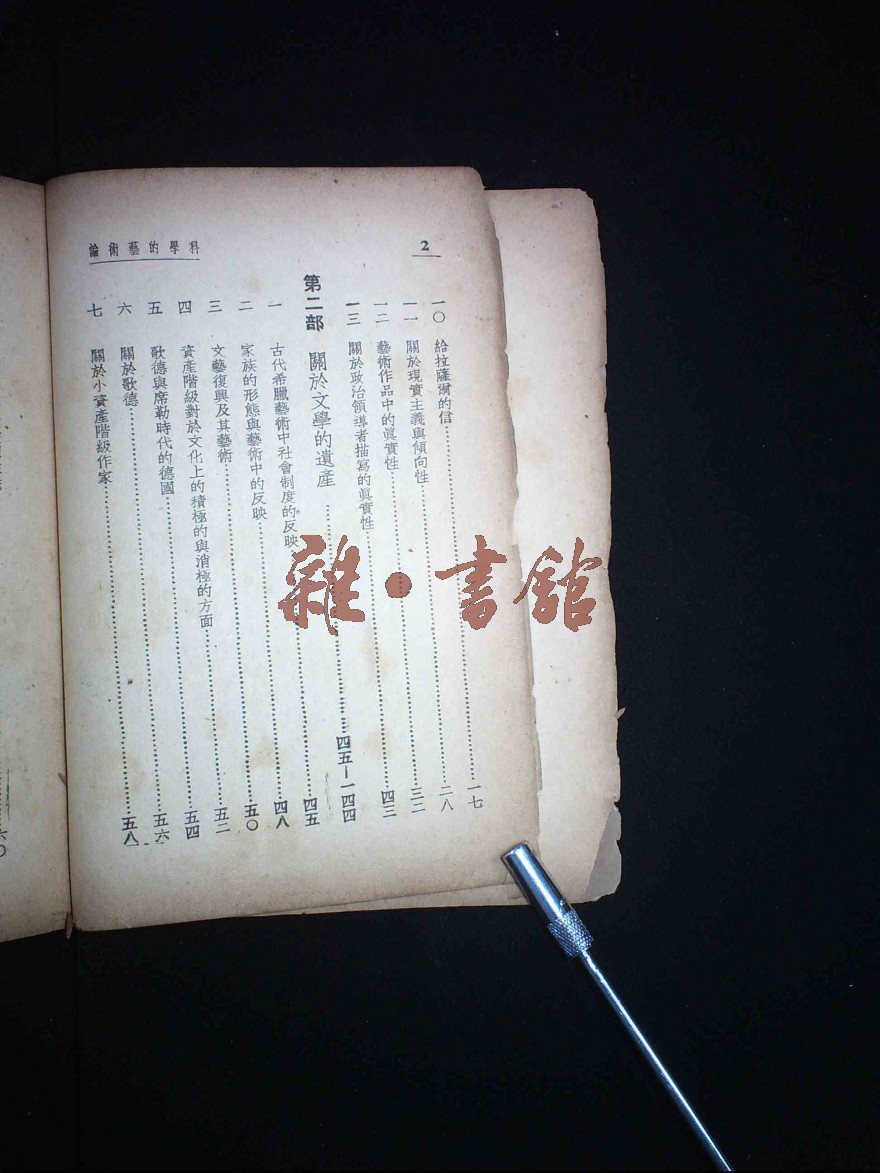 2
科學的藝術論
一〇 給拉薩爾的信……一七
一一 關於現實主義與傾向性……二八
一二 藝術作品中的眞實性……三二
一三 關於政治領導者描寫的眞實性……四三
第二部 關於文學的遺產……四五—一四四
一 古代希臘藝術中社會制度的反映……四五
二 家族的形態與藝術中的反映……四八
三 文藝復興及其藝術……五〇
四 資產階級對於文化上的積極的與消極的方面……五二
五 歌德與席勒時代的德國……五四
六 關於歌德……五六
七 關於小資產階級作家……五八
六〇
雜·書館